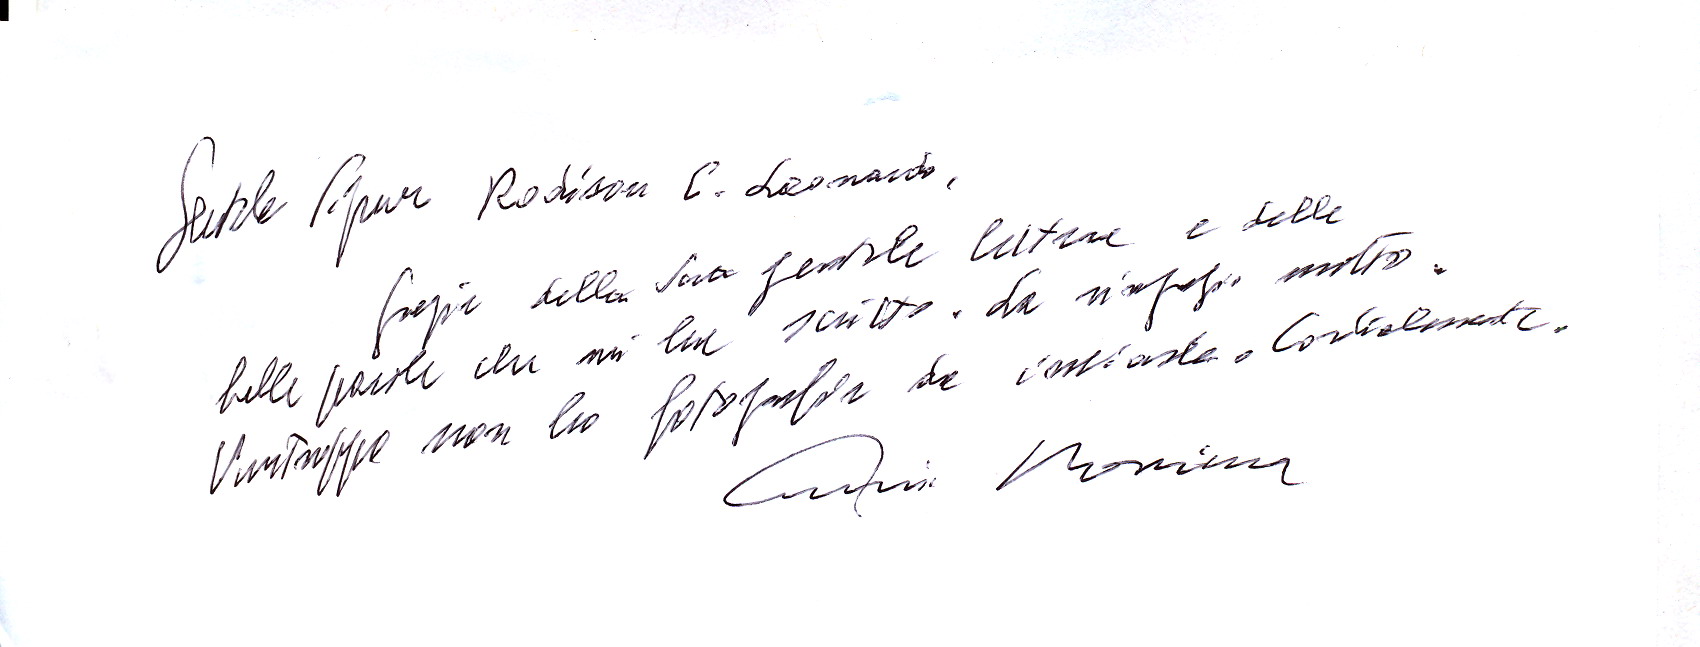 Gentile Signor Rodison C. Leonardo,
Grazie della sua gentile lettera e delle
belle parole che mi ha scritto. La ringrazio molto.
Purtroppo non ho fotografia da inviarle. Cordialmente.